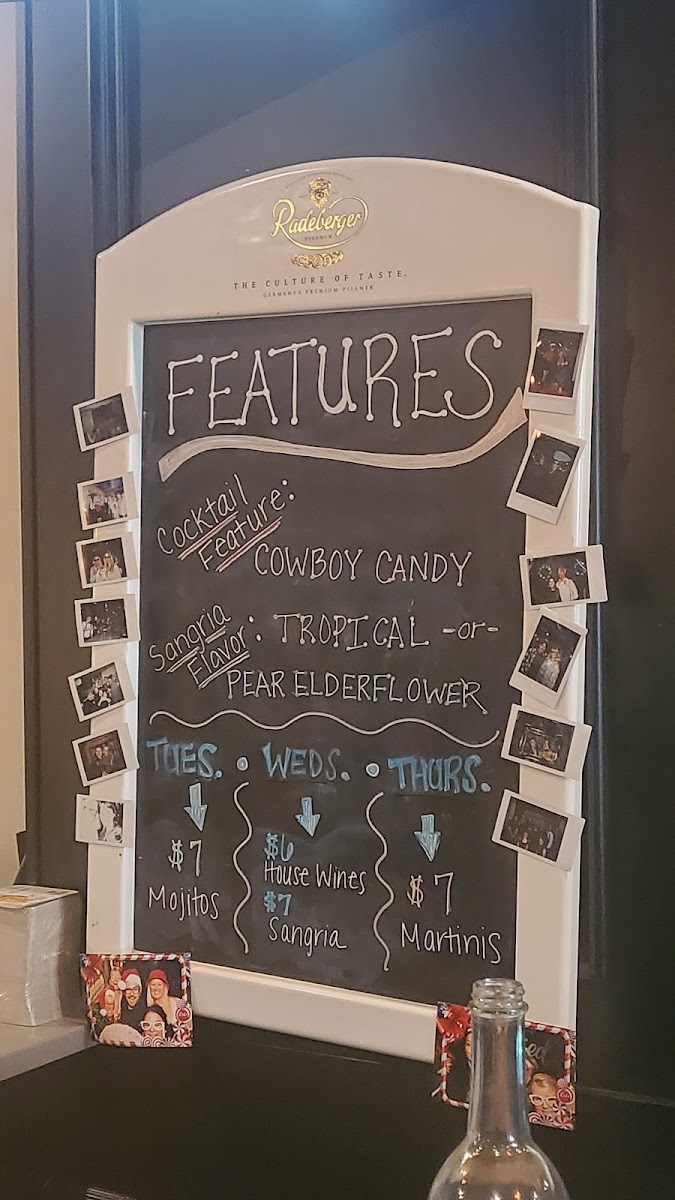 Radeberger
PILSNER
THE CULTURE OF TASTE.
GERMANY'S PREMIUM PILSNER
FEATURES
Cocktail
Feature:
COWBOY CANDY
Sangria
Flavor: TROPICAL -or-
PEAR ELDERFLOWER
TUES. • WEDS. • THURS.
$7
Mojitos
$6
House Wines
$7
Sangria
$7
Martinis